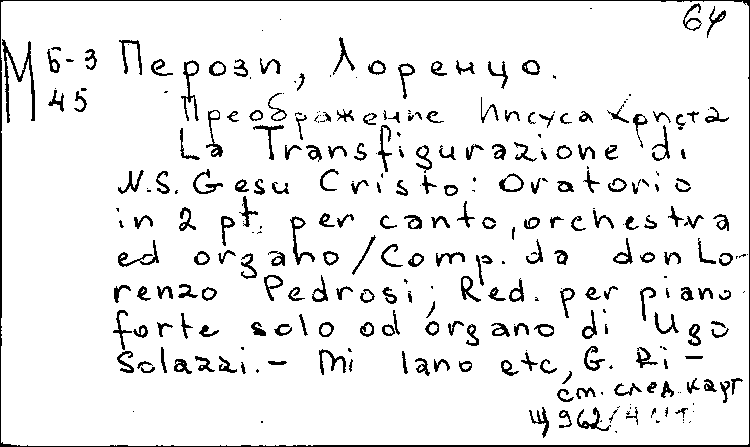 64
М Б-3 Перози, Лоренцо.
45
Преображение Иисуса Христа
La Transfigurazione di
N.S. Gesu Cristo: Oratorio
in 2 pt. per canto, orchestra
ed organo / Comp. da don Lo-
renzo Pedrosi; Red. per piano
forte solo od organo di Ugo
Solazzi. - Mi lano etc, G. Ri -
см. след. карт
Щ 962/4